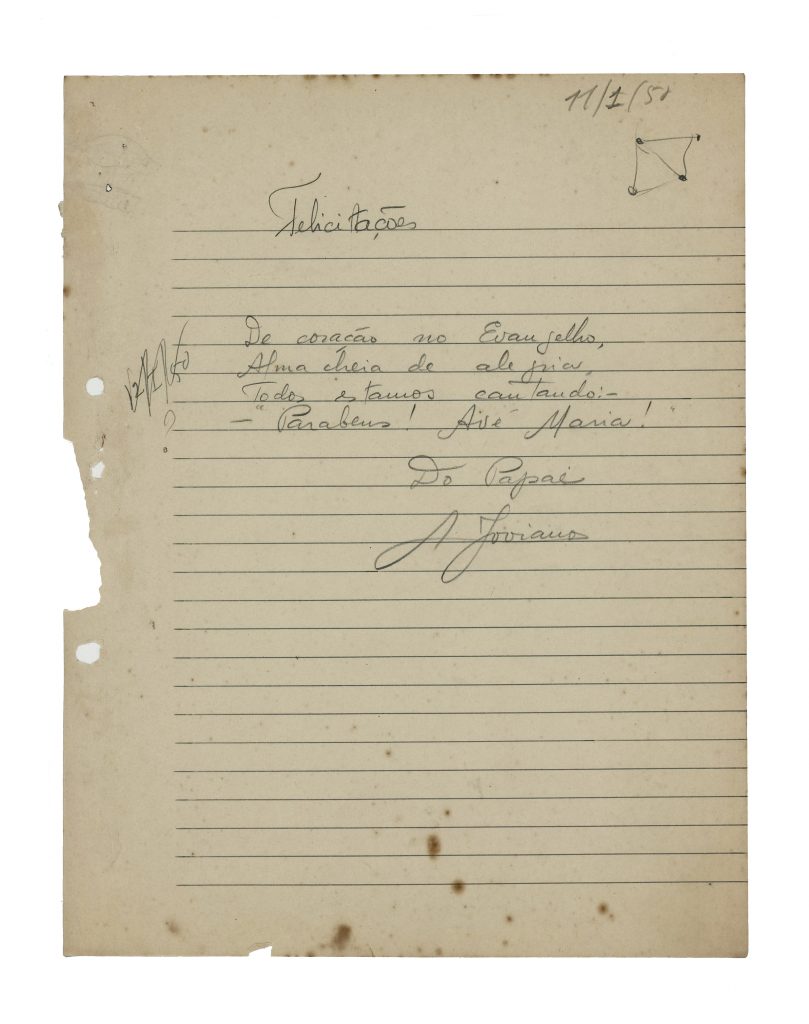 11/1/50
Felicitações
De coração no Evangelho,
Alma cheia de alegria,
Todos estamos cantando:-
- "Parabens! Avé Maria!"
12/1/50
?
Do Papai
A Joviano